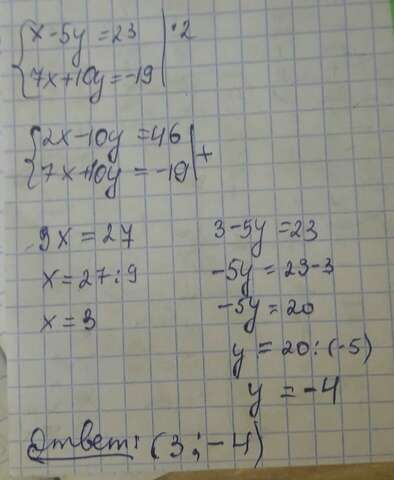 {x-5y=23 |·2
{7x+10y=-19
{2x-10y=46 |+
{7x+10y=-19
9x=27
x=27:9
x=3
3-5y=23
-5y=23-3
-5y=20
y=20:(-5)
y=-4
Ответ: (3;-4)